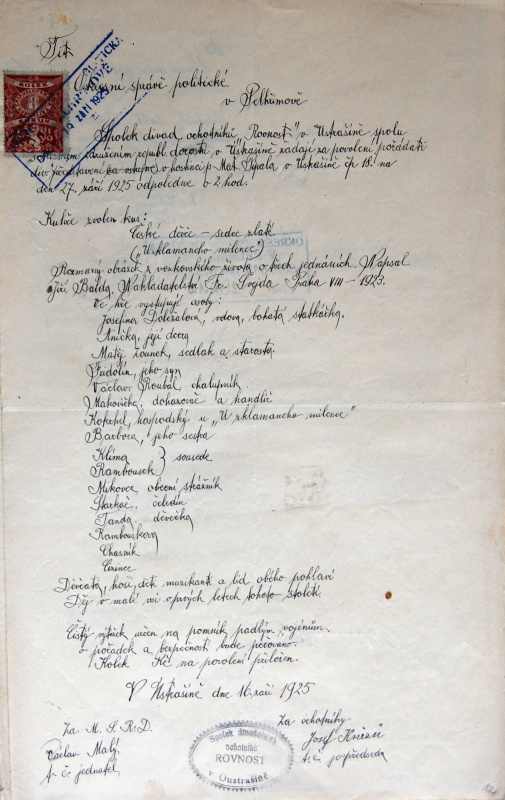 Tit.
Okresní správě politické
v Pelhřimově
Spolek divad. ochotníků "Rovnost" v Ústrašíně spolu
s místním sdružením republ. dorostu v Ústrašíně žádají za povolení pořádati
div. představení za vstupné v hostinci p. Mat. Sypala v Ústrašíně čp. 18. na
den 27. září 1925 odpoledne o 2. hod.
Ku hře zvolen kus:
České děvče – srdce zlaté
("U zklamaného milence")
Rozmarný obrázek z venkovského života o třech jednáních. Napsal
Jiří Balda, Nakladatelství Fr. Švejda Praha VIII – 1923.
Ve hře vystupují osoby:
Josefina Doležalová, vdova, bohatá statkářka.
Anička, její dcera
Matěj Žounek, sedlák a starosta
Fridolín, jeho syn
Václav Roubal chalupník
Makovička, dohazovač a handlíř
Kokrhel, hospodský u "U zklamaného milence"
Barbora, jeho sestra
Klíma } sousedé
Rambousek
Mrkovec obecní strážník
Starkač, čeledín
Fanda děvečka
Rambousková
Chasník
Děvčata, hoši, děti muzikanti a lid obého pohlaví
Děj v malé vsi v prvých letech tohoto století.
Čistý výtěžek určen na pomník padlým vojínům.
o pořádek a bezpečnost bude pečováno.
Kolek Kč na povolení přiložen.
V Ústrašíně dne 16. září 1925
Za M. S. R. D.
Václav Malý
t. č. jednatel
Spolek divadelních
ochotníků
ROVNOST
v Oustrašíně
Za ochotníky
Josef
t. č. předseda